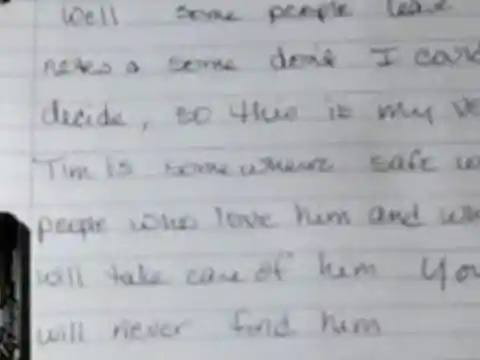 Well some people leave
notes & some dont I
decide, so this is my
Tim is somewhere safe
people who love him and
will take care of him You
will never find him